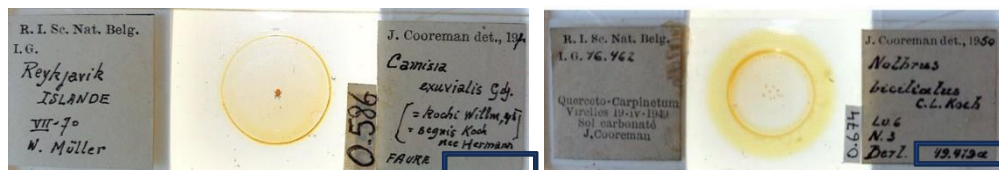 R. I. Sc. Nat. Belg.
I. G.
Reykjavik
ISLANDE
VII-70
W. Müller
O.586
J. Cooreman det., 19
Camisia
exuvialis Gdj.
= Kochi Willm,
= segnis Koch
nec Hermann
FAURE
R. I. Sc. Nat. Belg.
I. G. 16.462
Querceto-Carpinetum
Virelles 19-IV-1949
Sol carbonaté
J. Cooreman
O.674
J. Cooreman det., 1950
Nothrus
biciliatus
C.L. Koch
N.3
Berl. 49.479a